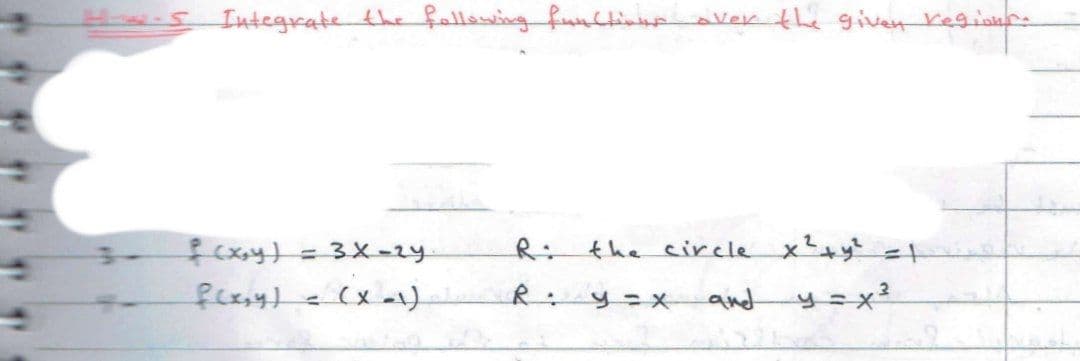 H-w-5 Integrate the following functions over the given regions:
3- f(x,y) = 3x-2y R: the circle x²+y²=1
f(x,y) = (x-1) R: y=x and y=x³